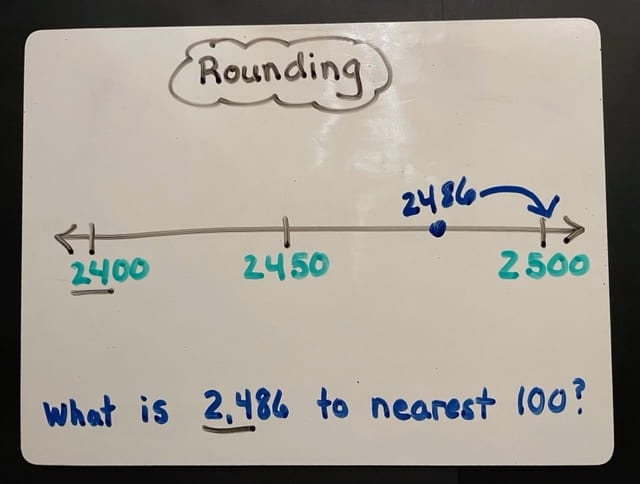 Rounding
2486
2400 2450 2500
What is 2,486 to nearest 100?